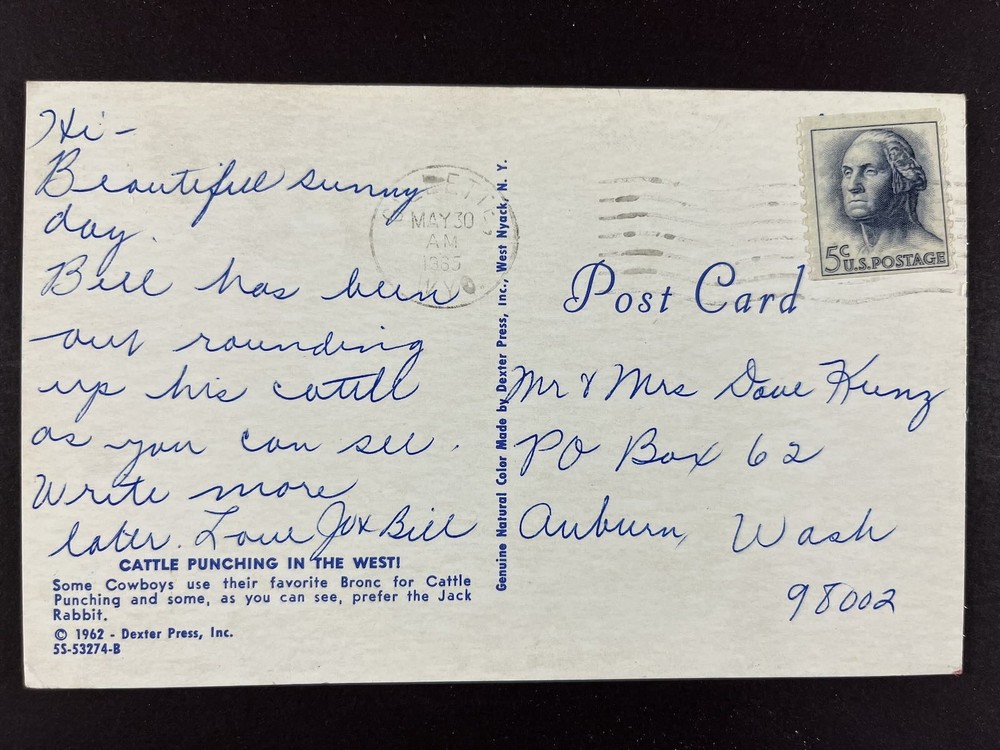 Hi -
Beautiful sunny
day.
Bill has been
out rounding
up his cattle
as you can see.
Write more
later. Love Bill
CATTLE PUNCHING IN THE WEST!
Some Cowboys use their favorite Bronc for Cattle
Punching and some, as you can see, prefer the Jack
Rabbit.
© 1962 - Dexter Press, Inc.
5S-53274-B
MAY 30
AM
1965
Genuine Natural Color Made by Dexter Press, Inc., West Nyack, N. Y.
5c U.S. POSTAGE
Post Card
Mr & Mrs Dave Kunz
PO Box 62
Auburn, Wash
98002